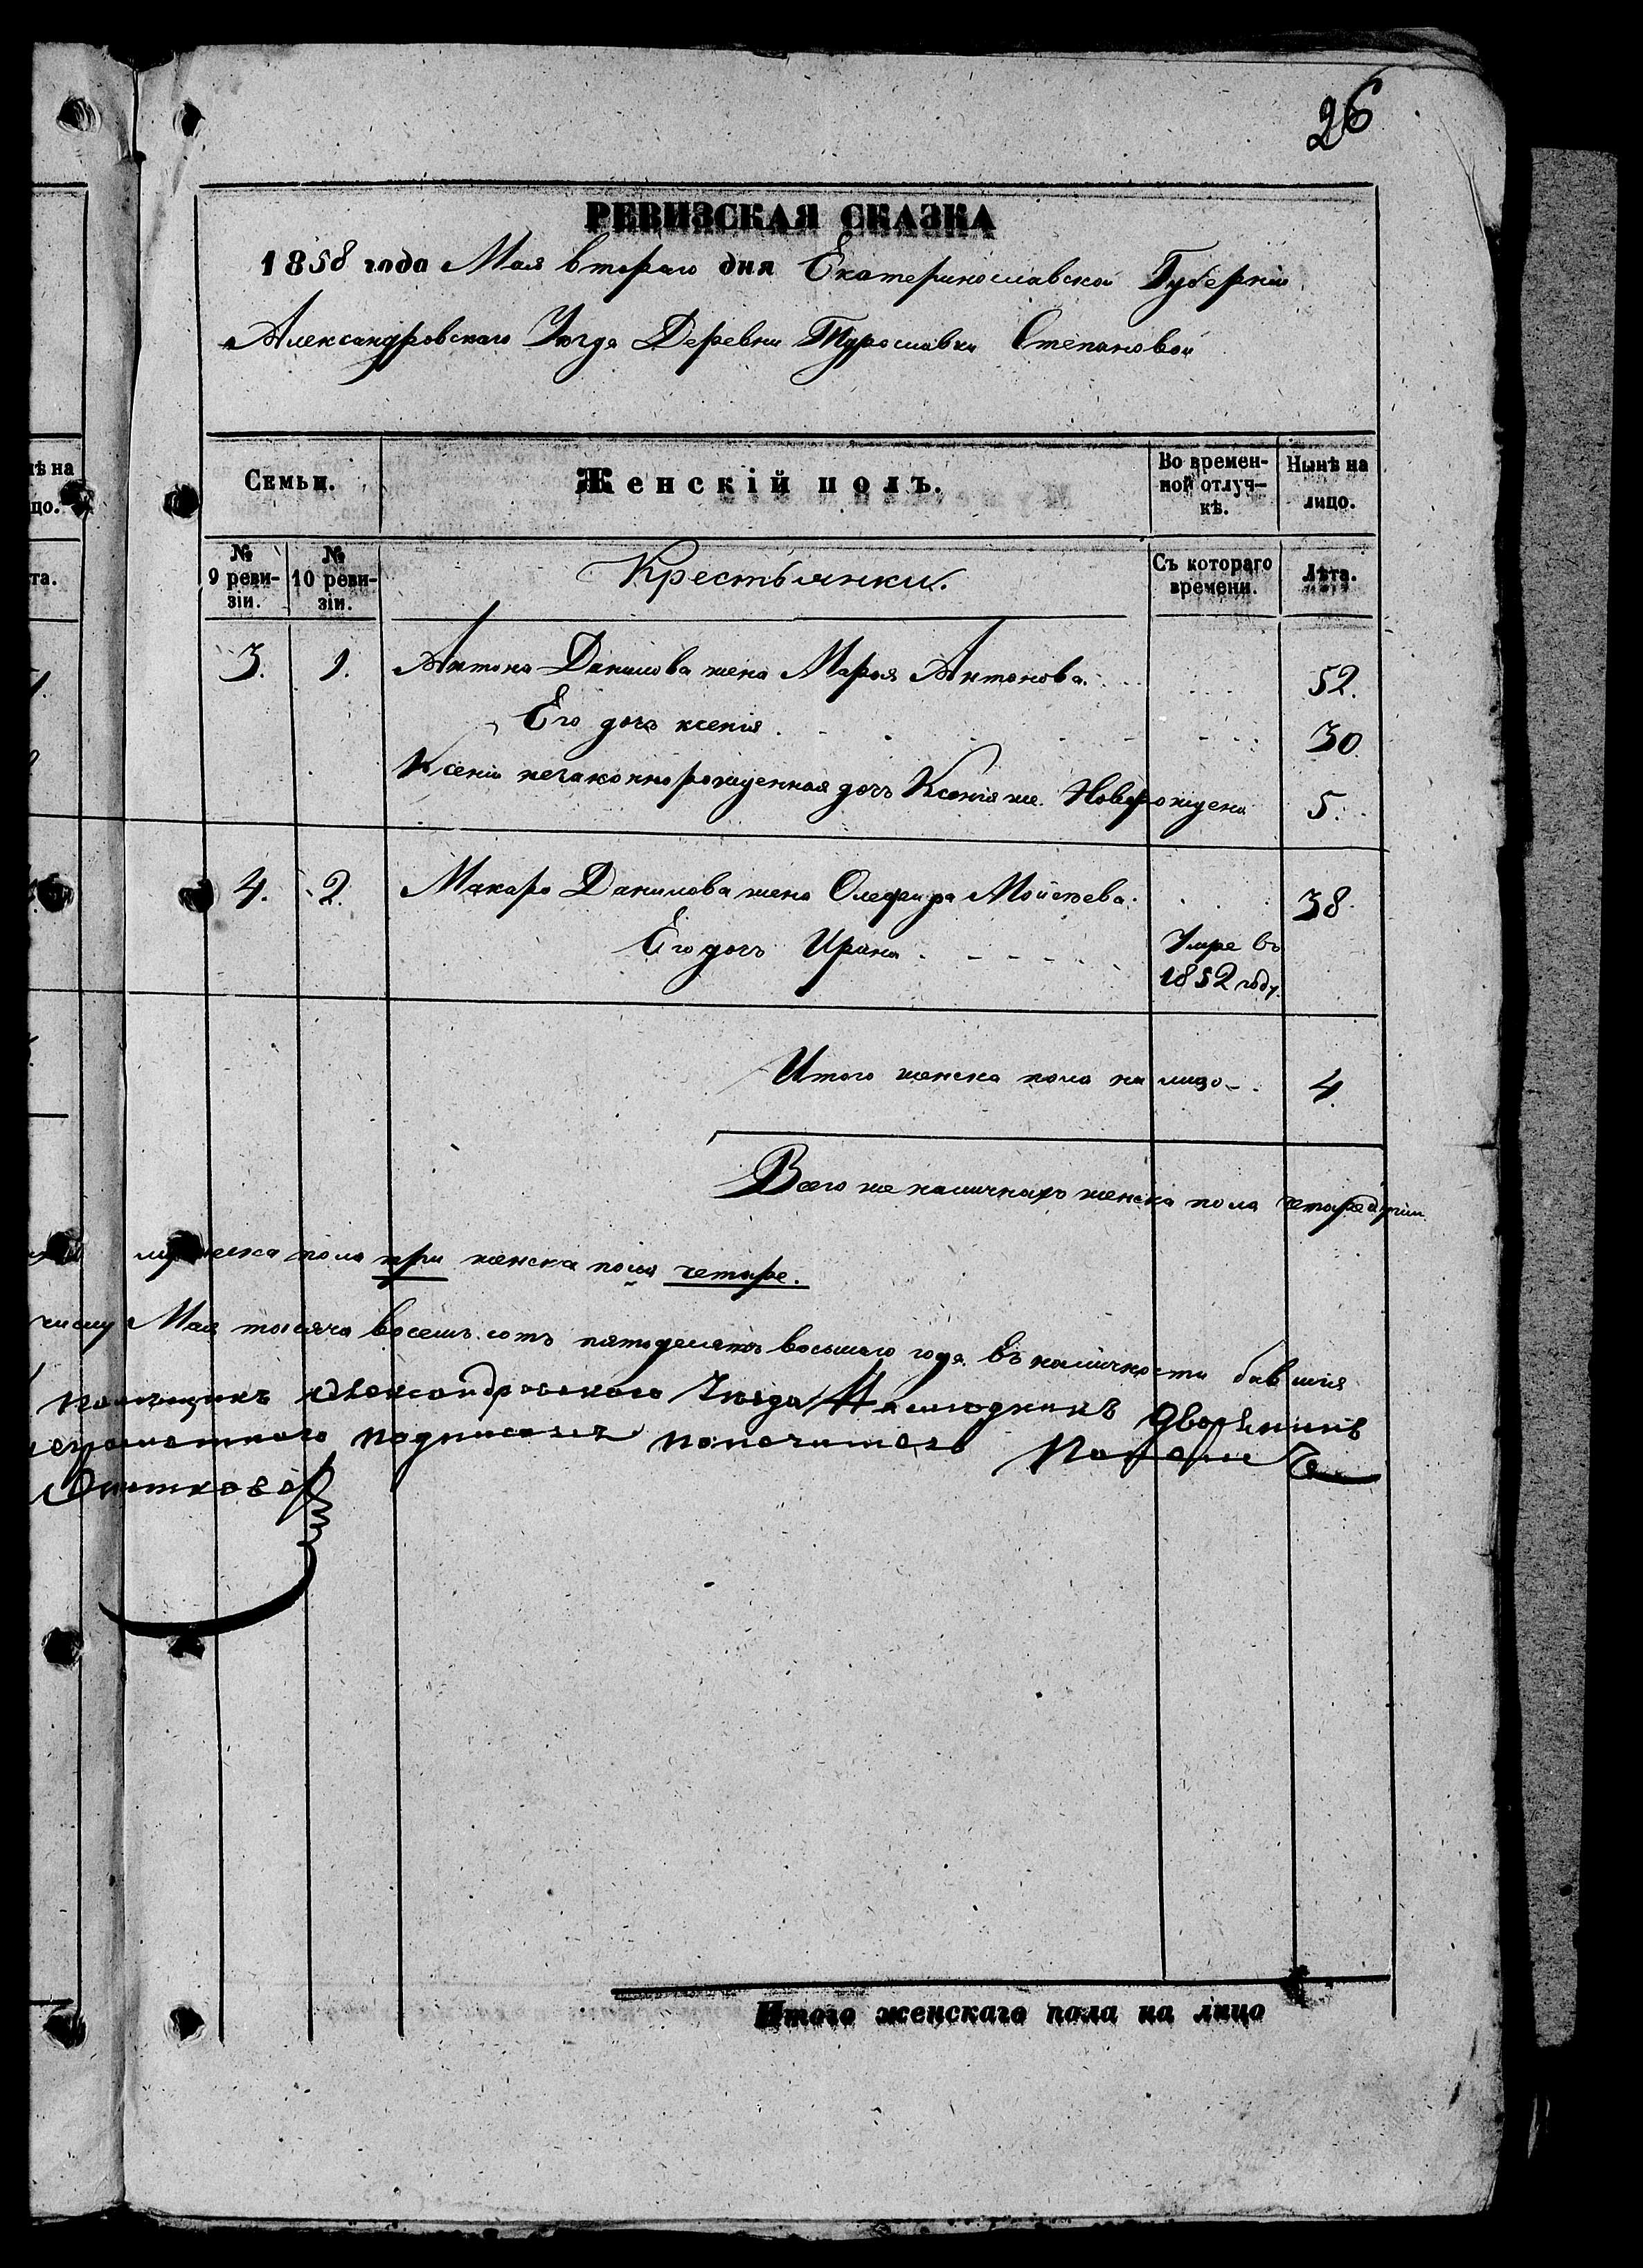 26
РЕВИЗСКАЯ СКАЗКА
1858 года Мая втораго дня Екатеринославской Губерніи
Александровскаго Уезда Деревни Степановой
Семьи.
Женскій полъ.
Во времен-
ной отлуч-
кѣ.
Нынѣ на
лицо.
№
9 реви-
зіи.
№
10 реви-
зіи.
Крестьянки.
Съ котораго
времени.
Лѣта.
3. 1. Антона Данилова жена Марья Антонова 52.
Его дочь ксенія 30
Ксеніи незаконнорожденная дочь Ксенія же. Новорождена 5.
4. 2. Макара Данилова жена Мойсѣева 38
Его дочь Ирина Умре въ
1852 году.
Итого женска пола на лицо 4.
Всего же наличнахъ женска пола
пола три женска пола четыре.
числу Мая тысяча восемь сотъ пятдесятъ восьмого года въ наличности
Александровского Уезда дворянинъ
подписалъ попечитель